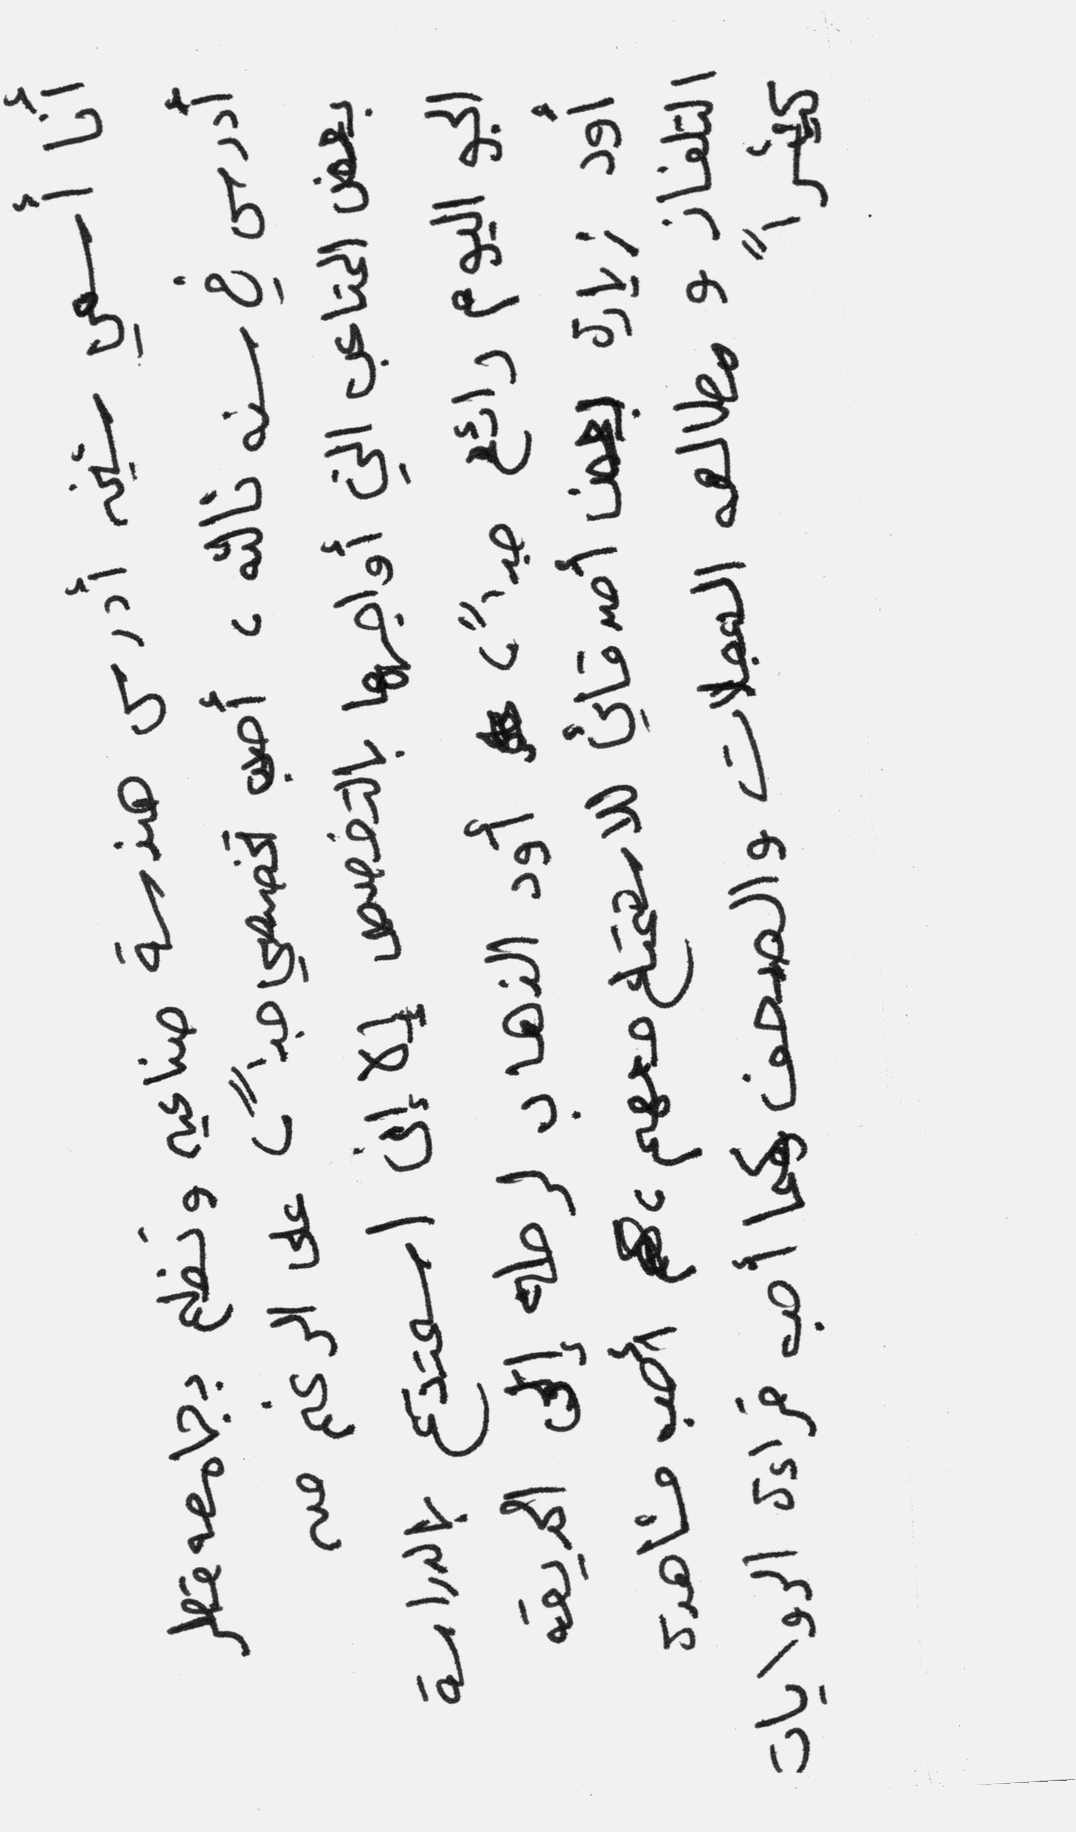 أنا أسمي بثينه أدرس هندسة صناعيه ونظم بجامعه قطر
أدرس في سنه ثالثه ، أحب تخصصي جداً ، على الرغم من
بعض المتاعب التي أواجهها بالتخصص إلا إني استمتع بالدراسة
الجو اليوم رائع جداً ، أود الذهاب لرحله إلى الحديقه
أود زيارة بعض أصدقائي للاستمتاع معهم ، أحب مشاهدة
التلفاز و مطالعه المجلات والصحف كما أحب قراءة الروايات
كثيراً